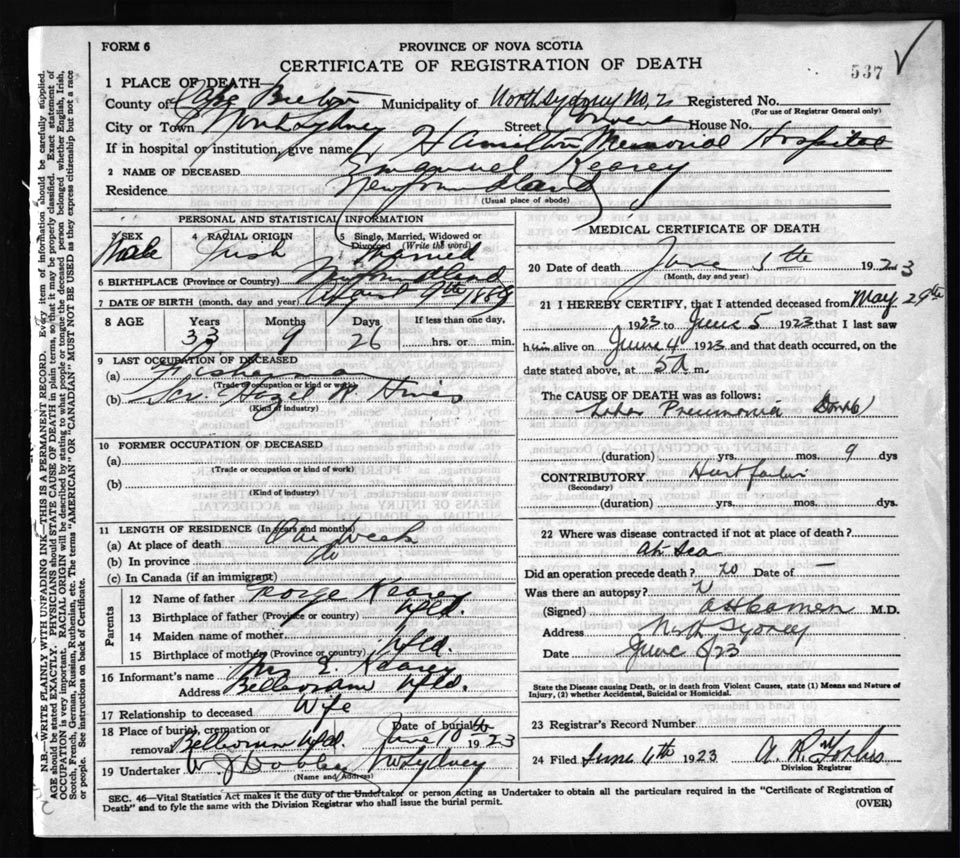 FORM 6
PROVINCE OF NOVA SCOTIA
CERTIFICATE OF REGISTRATION OF DEATH
537
1 PLACE OF DEATH—
County of Cape Breton Municipality of North Sydney No. 2 Registered No.
(For use of Registrar General only)
City or Town North Sydney Street House No.
If in hospital or institution, give name Hamilton Memorial Hospital
2 NAME OF DECEASED Emanuel Kearey
Residence Newfoundland
(Usual place of abode)
PERSONAL AND STATISTICAL INFORMATION
3 SEX Male
4 RACIAL ORIGIN Irish
5 Single, Married, Widowed or Divorced (Write the word) Married
6 BIRTHPLACE (Province or Country) Newfoundland
7 DATE OF BIRTH (month, day and year) August 9th 1889
8 AGE Years Months Days If less than one day,
33 9 26 hrs. or min.
9 LAST OCCUPATION OF DECEASED
(a) Fisherman
(Trade or occupation or kind of work)
(b) Scr. Hazel R. Hines
(Kind of industry)
10 FORMER OCCUPATION OF DECEASED
(a)
(Trade or occupation or kind of work)
(b)
(Kind of industry)
11 LENGTH OF RESIDENCE (In years and months)
(a) At place of death One Week
(b) In province do
(c) In Canada (if an immigrant)
Parents
12 Name of father George Kearey
13 Birthplace of father (Province or country) Nfld.
14 Maiden name of mother
15 Birthplace of mother (Province or country) Nfld.
16 Informant's name Mrs Kearey
Address Belleoram Nfld.
17 Relationship to deceased Wife
18 Place of burial, cremation or removal Belleoram Nfld. Date of burial June 1923
19 Undertaker N Sydney
(Name and Address)
MEDICAL CERTIFICATE OF DEATH
20 Date of death June 5th 1923
(Month, day and year)
21 I HEREBY CERTIFY, that I attended deceased from May 29th
1923 to June 5 1923 that I last saw
him alive on June 4 1923 and that death occurred, on
date stated above, at 5 a m.
The CAUSE OF DEATH was as follows:
Lobar Pneumonia Double
(duration) yrs. mos. 9 dys
CONTRIBUTORY Heart failure
(Secondary)
(duration) yrs. mos. dys.
22 Where was disease contracted if not at place of death?
At Sea
Did an operation precede death? No Date of —
Was there an autopsy? N
(Signed) M.D.
Address North Sydney
Date June 23
State the Disease causing Death, or in death from Violent Causes, state (1) Means and Nature of
Injury, (2) whether Accidental, Suicidal or Homicidal.
23 Registrar's Record Number
24 Filed June 6th 1923
Division Registrar
SEC. 46—Vital Statistics Act makes it the duty of the Undertaker or person acting as Undertaker to obtain all the particulars required in the "Certificate of Registration of
Death" and to fyle the same with the Division Registrar who shall issue the burial permit.
(OVER)
N.B.—WRITE PLAINLY WITH UNFADING INK—THIS IS A PERMANENT RECORD. Every item of information should be carefully supplied.
AGE should be stated EXACTLY. PHYSICIANS should STATE CAUSE OF DEATH in plain terms, so that it may be properly classified. Exact statement of
OCCUPATION is very important. RACIAL ORIGIN will be described by stating to what people or tongue the deceased person belonged whether English, Irish,
Scotch, French, German, Russian, Ruthenian, etc. The terms "AMERICAN" OR "CANADIAN" MUST NOT BE USED as they express citizenship but not a race
or people. See instructions on back of Certificate.